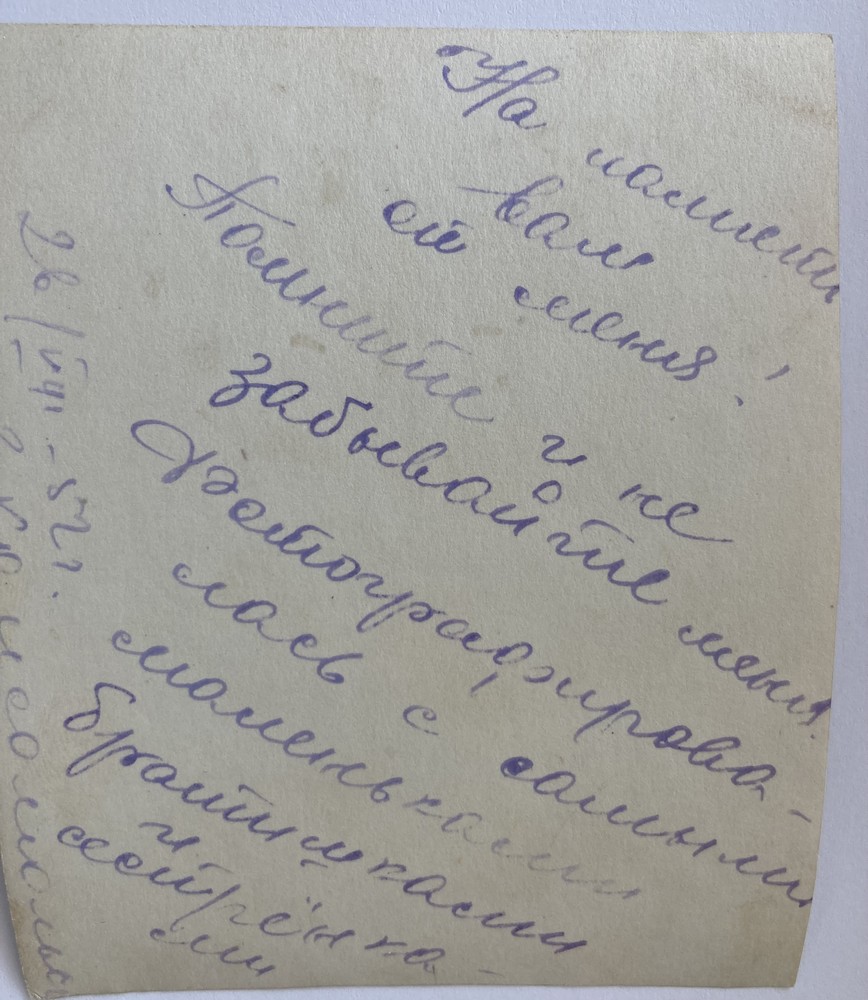 На памяти
вам
ей меня!
Помните и не
забывайте меня!
Фотографирова-
лась с самыми
маленькими
братишками
и
сестрёнка-
ми
28/VIII-57г.